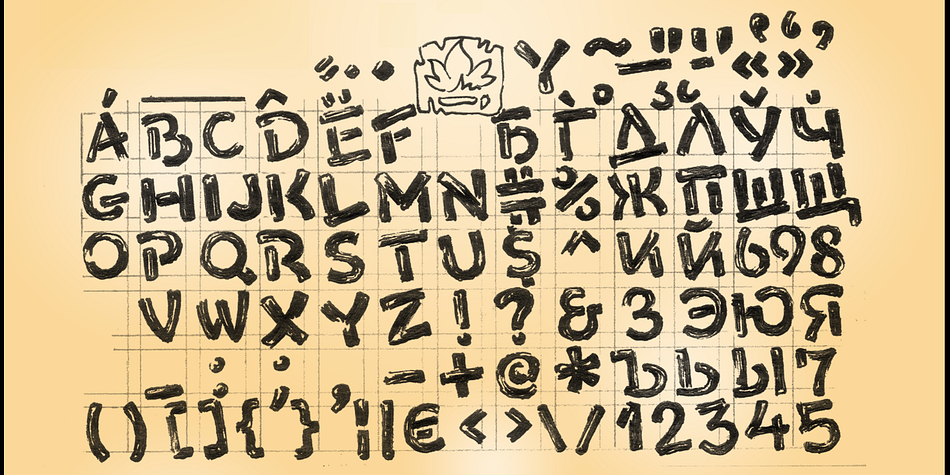 Y ~ " " ° ʻ ,
_ « »
Á B C Ô Ë F Б Ѓ Д Л Ў Ч
G H I J K L M N # % Ж П Ш Щ
O P Q R S T U $ ^ И Й 6 9 8
V W X Y Z ! ? & З Э Ю Я
_ : ; - + @ * Ъ Ь Ы 7
( ) [ ] { ' } , ¦ | € < > \ / 1 2 3 4 5